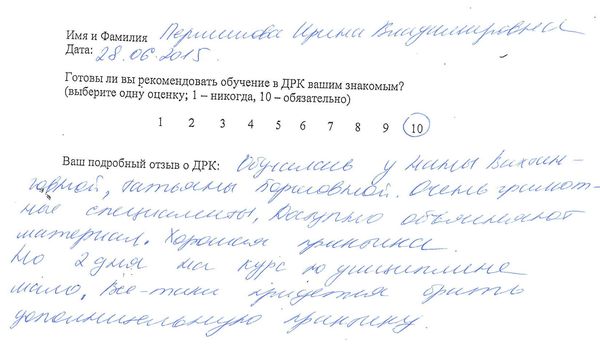 Имя и Фамилия Пермитова Ирина Владимировна
Дата: 28.06.2015.
Готовы ли вы рекомендовать обучение в ДРК вашим знакомым?
(выберите одну оценку; 1 – никогда, 10 – обязательно)
1 2 3 4 5 6 7 8 9 10
Ваш подробный отзыв о ДРК: Обучалась у Нины Вахтан-
говной, Татьяны Борисовной. Очень грамот-
ные специалисты, Доступно объясняют
материал. Хорошая практика.
Но 2 дня на курс по
мало, Всё-таки придется брать
дополнительную практику.